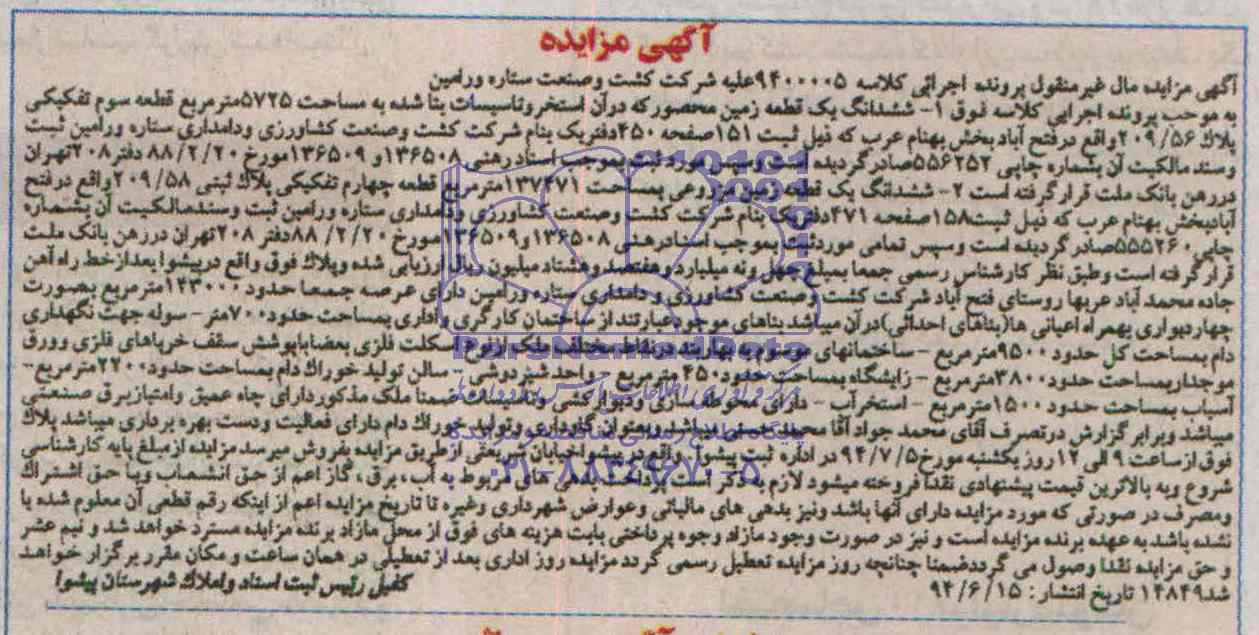 آگهی مزایده
آگهی مزایده مال غیرمنقول پرونده اجرائی کلاسه ۹۴۰۰۰۰۵علیه شرکت کشت وصنعت ستاره ورامین
به موجب پرونده اجرایی کلاسه فوق ۱- ششدانگ یک قطعه زمین محصورکه درآن استخروتاسیسات بنا شده به مساحت ۵۷۲۵مترمربع قطعه سوم تفکیکی
پلاک ۲۰۹/۵۶واقع درفتح آباد بخش بهنام عرب که ذیل ثبت ۱۵۱صفحه ۴۵۰دفتریک بنام شرکت کشت وصنعت کشاورزی ودامداری ستاره ورامین ثبت
وسند مالکیت آن بشماره چاپی ۵۵۶۲۵۲صادرگردیده است وسپس مورد ثبت بموجب اسنادرهنی ۱۳۶۵۰۸و ۱۳۶۵۰۹مورخ ۸۸/۲/۲۰ دفتر۲۰۸تهران
دررهن بانک ملت قرارگرفته است ۲- ششدانگ یک قطعه زمین مزروعی بمساحت ۱۳۷۴۷۱مترمربع قطعه چهارم تفکیکی پلاک ثبتی ۲۰۹/۵۸واقع درفتح
آبادبخش بهنام عرب که ذیل ثبت۱۵۸صفحه ۴۷۱دفتریک بنام شرکت کشت وصنعت کشاورزی ودامداری ستاره ورامین ثبت وسندمالکیت آن بشماره
چاپی ۵۵۵۲۶۰صادرگردیده است وسپس تمامی موردثبت بموجب اسنادرهنی ۱۳۶۵۰۸و۱۳۶۵۰۹مورخ ۸۸/۲/۲۰دفتر ۲۰۸تهران دررهن بانک ملت
قرارگرفته است وطبق نظر کارشناس رسمی جمعا بمبلغ چهل ونه میلیارد وهفتصد وهشتاد میلیون ریال ارزیابی شده وپلاک فوق واقع درپیشوا بعدازخط راه آهن
جاده محمد آباد عربها روستای فتح آباد شرکت کشت وصنعت کشاورزی و دامداری ستاره ورامین دارای عرصه جمعا حدود ۱۴۳۰۰۰مترمربع بصورت
چهاردیواری بهمراه اعیانی ها(بناهای احداثی)درآن میباشد بناهای موجود عبارتند از ساختمان کارگری و اداری بمساحت حدود۷۰۰متر- سوله جهت نگهداری
دام بمساحت کل حدود۹۵۰۰مترمربع - ساختمانهای موسوم به بهاربند درنقاط مختلف ملک ازنوع اسکلت فلزی بعضاباپوشش سقف خرپاهای فلزی وورق
موجداربمساحت حدود۳۸۰۰مترمربع - زایشگاه بمساحت حدود۴۵۰ مترمربع - واحد شیردوشی - سالن تولید خوراک دام بمساحت حدود۲۲۰۰مترمربع-
آسیاب بمساحت حدود۱۵۰۰مترمربع - استخرآب - دارای محوطه سازی ودیوارکشی وتاسیسات ضمنا ملک مذکوردارای چاه عمیق وامتیازبرق صنعتی
میباشد وبرابر گزارش درتصرف آقای محمد جواد آقا محمد حسنی میباشد وبعنوان گاوداری وتولید خوراک دام دارای فعالیت ودست بهره برداری میباشد پلاک
فوق ازساعت ۹ الی ۱۲ روز یکشنبه مورخ۹۴/۷/۵ در اداره ثبت پیشوا واقع در پیشواخیابان شریعتی ازطریق مزایده بفروش میرسد مزایده ازمبلغ پایه کارشناسی
شروع وبه بالاترین قیمت پیشنهادی نقدا فروخته میشود لازم به ذکر است پرداخت بدهی های مربوط به آب، برق، گاز اعم از حق انشعاب ویا حق اشتراک
ومصرف در صورتی که مورد مزایده دارای آنها باشد ونیز بدهی های مالیاتی وعوارض شهرداری وغیره تا تاریخ مزایده اعم از اینکه رقم قطعی آن معلوم شده یا
نشده باشد به عهده برنده مزایده است و نیز در صورت وجود مازاد وجوه پرداختی بابت هزینه های فوق از محل مازاد برنده مزایده مسترد خواهد شد و نیم عشر
و حق مزایده نقدا وصول می گرددضمنا چنانچه روز مزایده تعطیل رسمی گردد مزایده روز اداری بعد از تعطیلی در همان ساعت و مکان مقرر برگزار خواهد
شد۱۴۸۴۹ تاریخ انتشار : ۹۴/۶/۱۵
کفیل رئیس ثبت اسناد واملاک شهرستان پیشوا
ParsNamadData
پایگاه اطلاع رسانی مناقصه و مزایده
۰۲۱-۸۸۳۴۹۶۷۰-۵